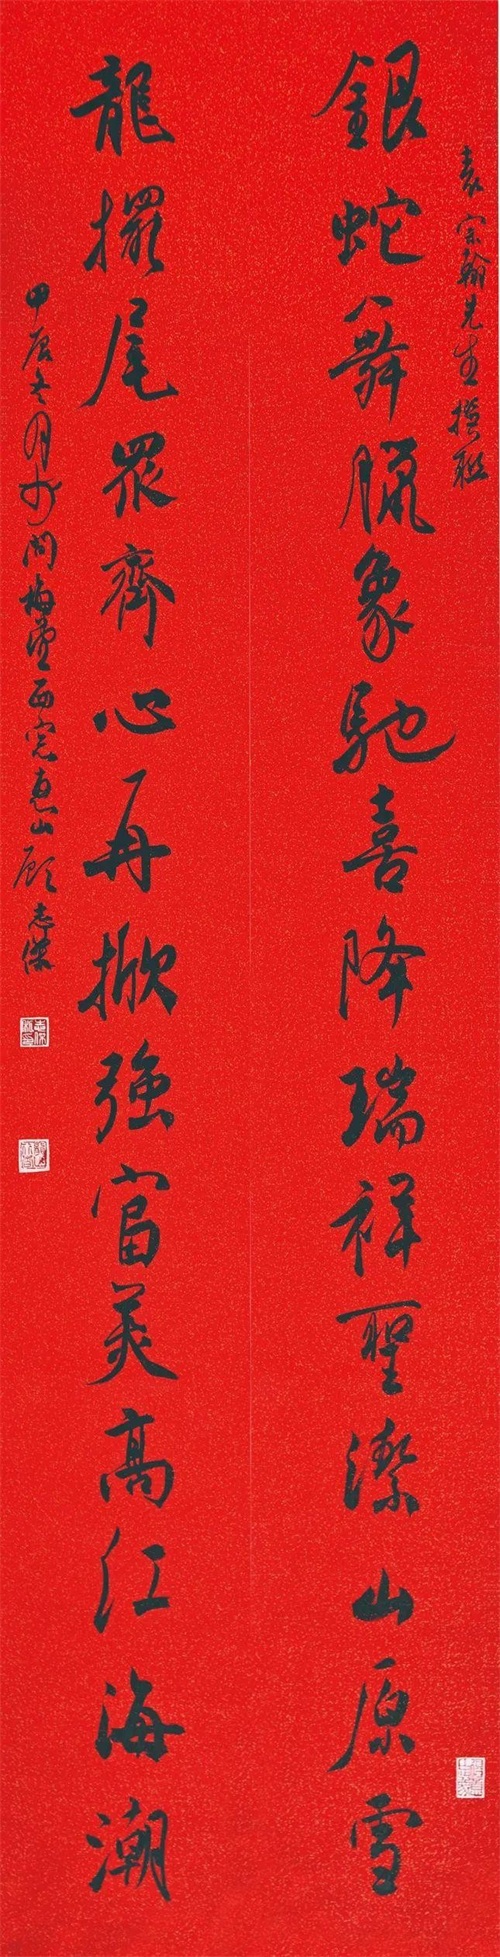 袁宗翰先生撰聯
銀蛇舞臘象馳喜降瑞祥聖潔山原雪
龍擺尾眾齊心再掀強富美高江海潮
甲辰冬月於問梅堂西窗惠山顧志傑